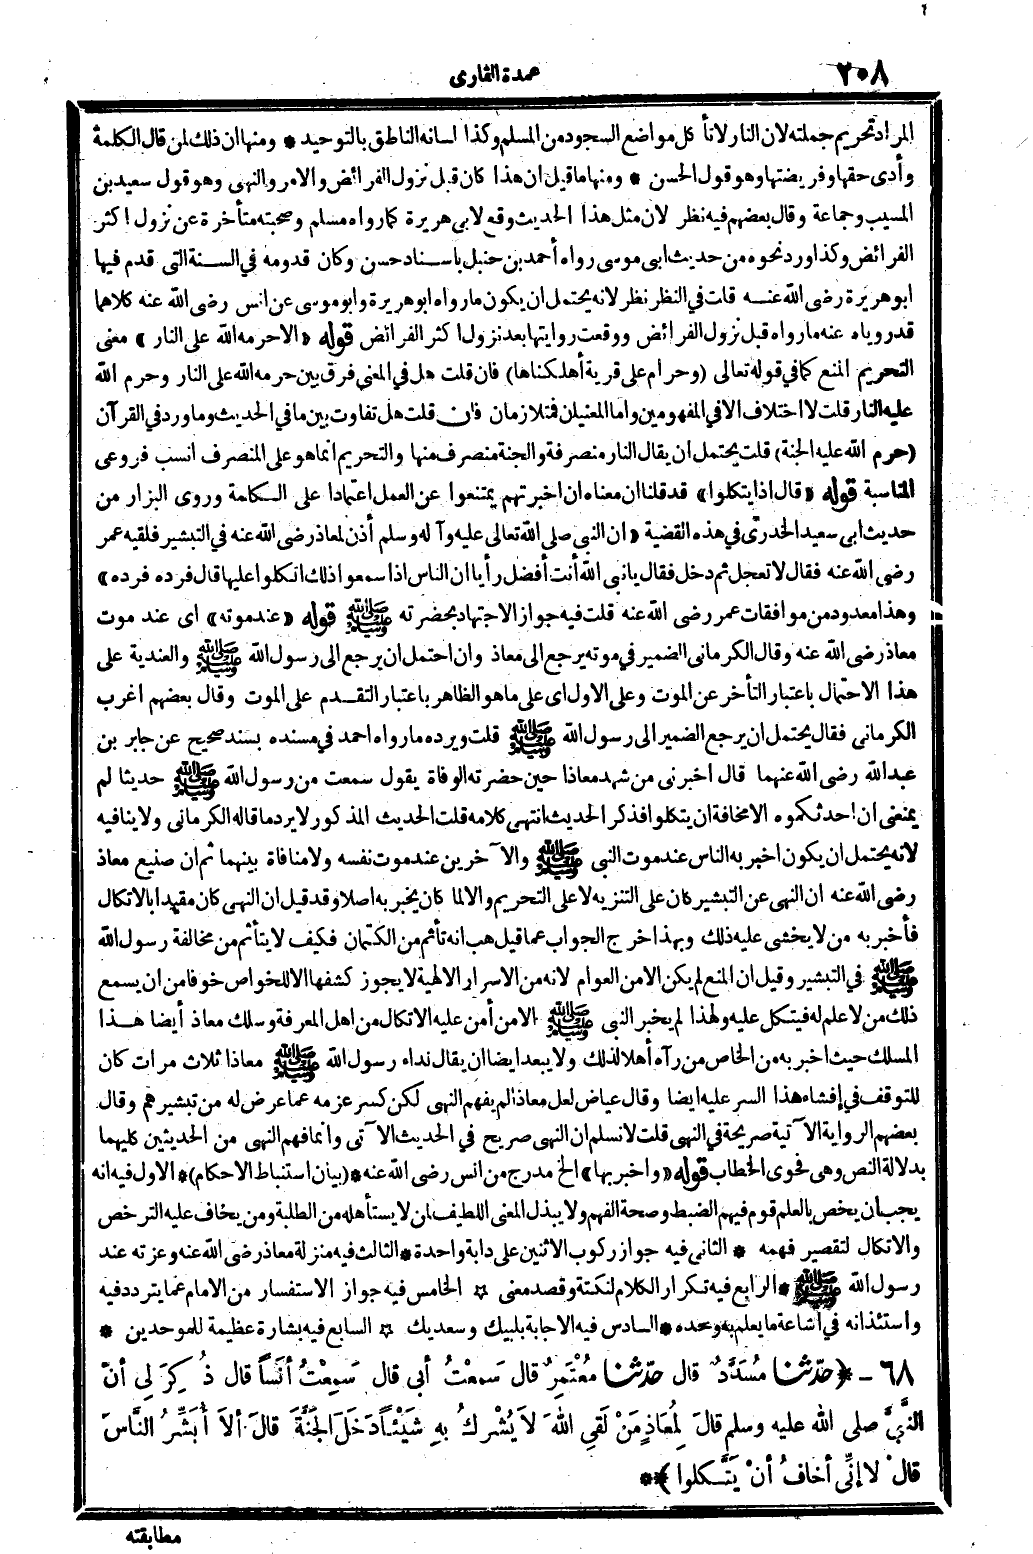 ٢٠٨
عمدة القارى
المراد تحريم جملته لان النار لا تأ كل مواضع السجود من المسلم وكذا لسانه الناطق بالتوحيد * ومنها ان ذلك لمن قال الكلمة
وأدى حقها وفريضتها وهو قول الحسن * ومنها ما قيل ان هذا كان قبل نزول الفرائض والامر والنهى وهو قول سعيد بن
المسيب وجماعة وقال بعضهم فيه نظر لان مثل هذا الحديث وقع لابى هريرة كما رواه مسلم وصحبته متأخرة عن نزول اكثر
الفرائض وكذا ورد نحوه من حديث ابى موسى رواه أحمد بن حنبل باسناد حسن وكان قدومه فى السنة التى قدم فيها
ابو هريرة رضى الله عنه قلت فى النظر نظر لانه يحتمل ان يكون ما رواه ابو هريرة وابو موسى عن انس رضى الله عنه كلاهما
قد روياه عنه ما رواه قبل نزول الفرائض ووقعت روايتها بعد نزول اكثر الفرائض قوله «الا حرمه الله على النار» معنى
التحريم المنع كما فى قوله تعالى (وحرام على قرية أهلكناها) فان قلت هل فى المعنى فرق بين حرمه الله على النار وحرم الله
عليه النار قلت لا اختلاف الا فى المفهومين واما المعنيان فمتلازمان فان قلت هل تفاوت بين ما فى الحديث وما ورد فى القرآن
(حرم الله عليه الجنة) قلت يحتمل ان يقال النار منصرفة والجنة منصرف منها والتحريم انما هو على المنصرف انسب فروعى
المناسبة قوله «قال اذا يتكلوا» قد قلنا ان معناه ان اخبرتهم يمتنعوا عن العمل اعتمادا على الكلمة وروى البزار من
حديث ابى سعيد الخدرى فى هذه القضية «ان النبى صلى الله تعالى عليه وآله وسلم أذن لمعاذ رضى الله عنه فى التبشير فلقيه عمر
رضى الله عنه فقال لا تعجل ثم دخل فقال يا نبى الله أنت أفضل رأيا ان الناس اذا سمعوا ذلك اتكلوا عليها قال فرده فرده»
وهذا معدود من موافقات عمر رضى الله عنه قلت فيه جواز الاجتهاد بحضرته ﷺ قوله «عند موته» اى عند موت
معاذ رضى الله عنه وقال الكرمانى الضمير فى موته يرجع الى معاذ وان احتمل ان يرجع الى رسول الله ﷺ والعندية على
هذا الاحتمال باعتبار التأخر عن الموت وعلى الاول اى على ما هو الظاهر باعتبار التقدم على الموت وقال بعضهم اغرب
الكرمانى فقال يحتمل ان يرجع الضمير الى رسول الله ﷺ قلت ويرده ما رواه احمد فى مسنده بسند صحيح عن جابر بن
عبد الله رضى الله عنهما قال اخبرنى من شهد معاذا حين حضرته الوفاة يقول سمعت من رسول الله ﷺ حديثا لم
يمنعنى ان احدثكموه الا مخافة ان يتكلوا فذكر الحديث انتهى كلامه قلت الحديث المذكور لا يرد ما قاله الكرمانى ولا ينافيه
لانه يحتمل ان يكون اخبر به الناس عند موت النبى ﷺ والآخرين عند موت نفسه ولا منافاة بينهما ثم ان صنيع معاذ
رضى الله عنه ان النهى عن التبشير كان على التنزيه لا على التحريم والا لما كان يخبر به اصلا وقد قيل ان النهى كان مقيدا بالاتكال
فأخبر به من لا يخشى عليه ذلك وبهذا خرج الجواب عما قيل هب انه تأثم من الكتمان فكيف لا يتأثم من مخالفة رسول الله
ﷺ فى التبشير وقيل ان المنع لم يكن الا من العوام لانه من الاسرار الالهية لا يجوز كشفها الا للخواص خوفا من ان يسمع
ذلك من لا علم له فيتكل عليه ولهذا لم يخبر النبى ﷺ الا من أمن عليه الاتكال من اهل المعرفة وسلك معاذ أيضا هذا
المسلك حيث اخبر به من الخاص من رآه أهلا لذلك ولا يبعد ايضا ان يقال نداء رسول الله ﷺ معاذا ثلاث مرات كان
للتوقف فى إفشاء هذا السر عليه ايضا وقال عياض لعل معاذا لم يفهم النهى لكن كسر عزمه عما عرض له من تبشيرهم وقال
بعضهم الرواية الآتية صريحة فى النهى قلت لا نسلم ان النهى صريح فى الحديث الآتى وانما فهم النهى من الحديثين كليهما
بدلالة النص وهى فحوى الخطاب قوله «واخبر بها» الخ مدرج من انس رضى الله عنه *(بيان استنباط الاحكام)* الاول فيه انه
يجب أن يخص بالعلم قوم فيهم الضبط وصحة الفهم ولا يبذل المعنى اللطيف لمن لا يستأهله من الطلبة ومن يخاف عليه الترخص
والاتكال لتقصير فهمه * الثانى فيه جواز ركوب الاثنين على دابة واحدة * الثالث فيه منزلة معاذ رضى الله عنه وعزته عند
رسول الله ﷺ * الرابع فيه تكرار الكلام لنكتة وقصد معنى * الخامس فيه جواز الاستفسار من الامام عما يتردد فيه
واستئذانه فى اشاعة ما يعلم به وحده * السادس فيه الاجابة بلبيك وسعديك * السابع فيه بشارة عظيمة للموحدين *
٦٨ - ﴿حَدّثنا مُسَدَّدٌ قال حَدّثنا مُعْتَمِرٌ قال سَمِعْتُ أبى قال سَمِعْتُ أنَساً قال ذُكِرَ لِى أنّ
النَّبِىَّ صلى الله عليه وسلم قالَ لِمُعَاذٍ مَنْ لَقِىَ اللهَ لاَ يُشْرِكُ بِهِ شَيْئاً دَخَلَ الجَنَّةَ قالَ ألاَ أُبَشِّرُ النَّاسَ
قالَ لا إنِّى أخافُ أنْ يَتَّكلوا﴾ *
مطابقته